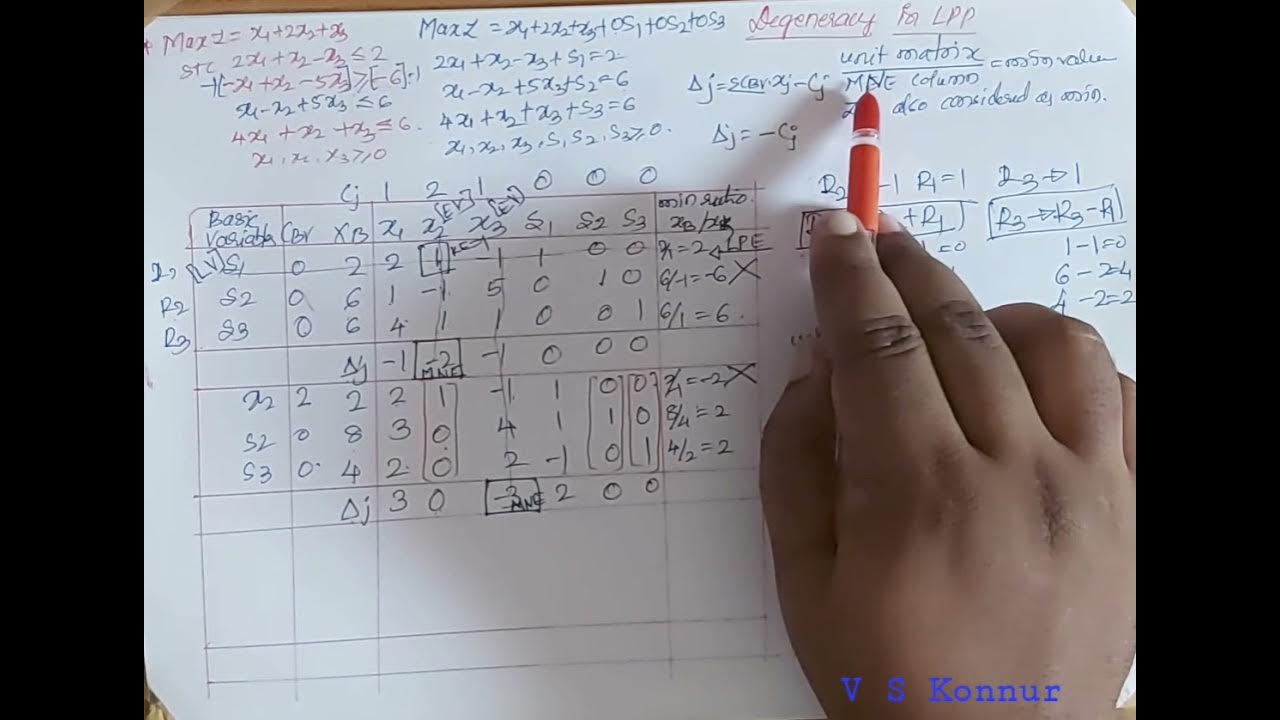 * Max Z = x1+2x2+x3
STC 2x1+x2-x3 ≤ 2
-1[-x1+x2-5x3] ≥ [-6]-1
x1-x2+5x3 ≤ 6
4x1+x2+x3 ≤ 6.
x1, x2, x3 ≥ 0
Max Z = x1+2x2+x3+0S1+0S2+0S3
2x1+x2-x3+S1=2
x1-x2+5x3+S2=6
4x1+x2+x3+S3=6
x1, x2, x3, S1, S2, S3 ≥ 0.
Degeneracy for LPP
Δj=ΣCBV.xj-Cj
Δj = -Cj
unit matrix = min value
MNE column
also considered as min.
Cj 1 2 1 0 0 0
Basic Variable CBV XB x1 x2 [EV] x3 [EV] S1 S2 S3 min ratio XB/xk
[LV] S1 0 2 2 1 -1 1 0 0 2/1=2 ← LPE
R2 S2 0 6 1 -1 5 0 1 0 6/-1=-6 X
R3 S3 0 6 4 1 1 0 0 1 6/1=6.
Δj -1 -2 -1 0 0 0
MNE
x2 2 2 2 1 -1 1 0 0 2/-1=-2 X
S2 0 8 3 0 4 1 1 0 8/4=2
S3 0 4 2 0 2 -1 0 1 4/2=2
Δj 3 0 -3 2 0 0
MNE
R2 -1 R1=1
+R1)
=0
R3→1
R3→R3-R1
1-1=0
6-2=4
4-2=2
V S Konnur